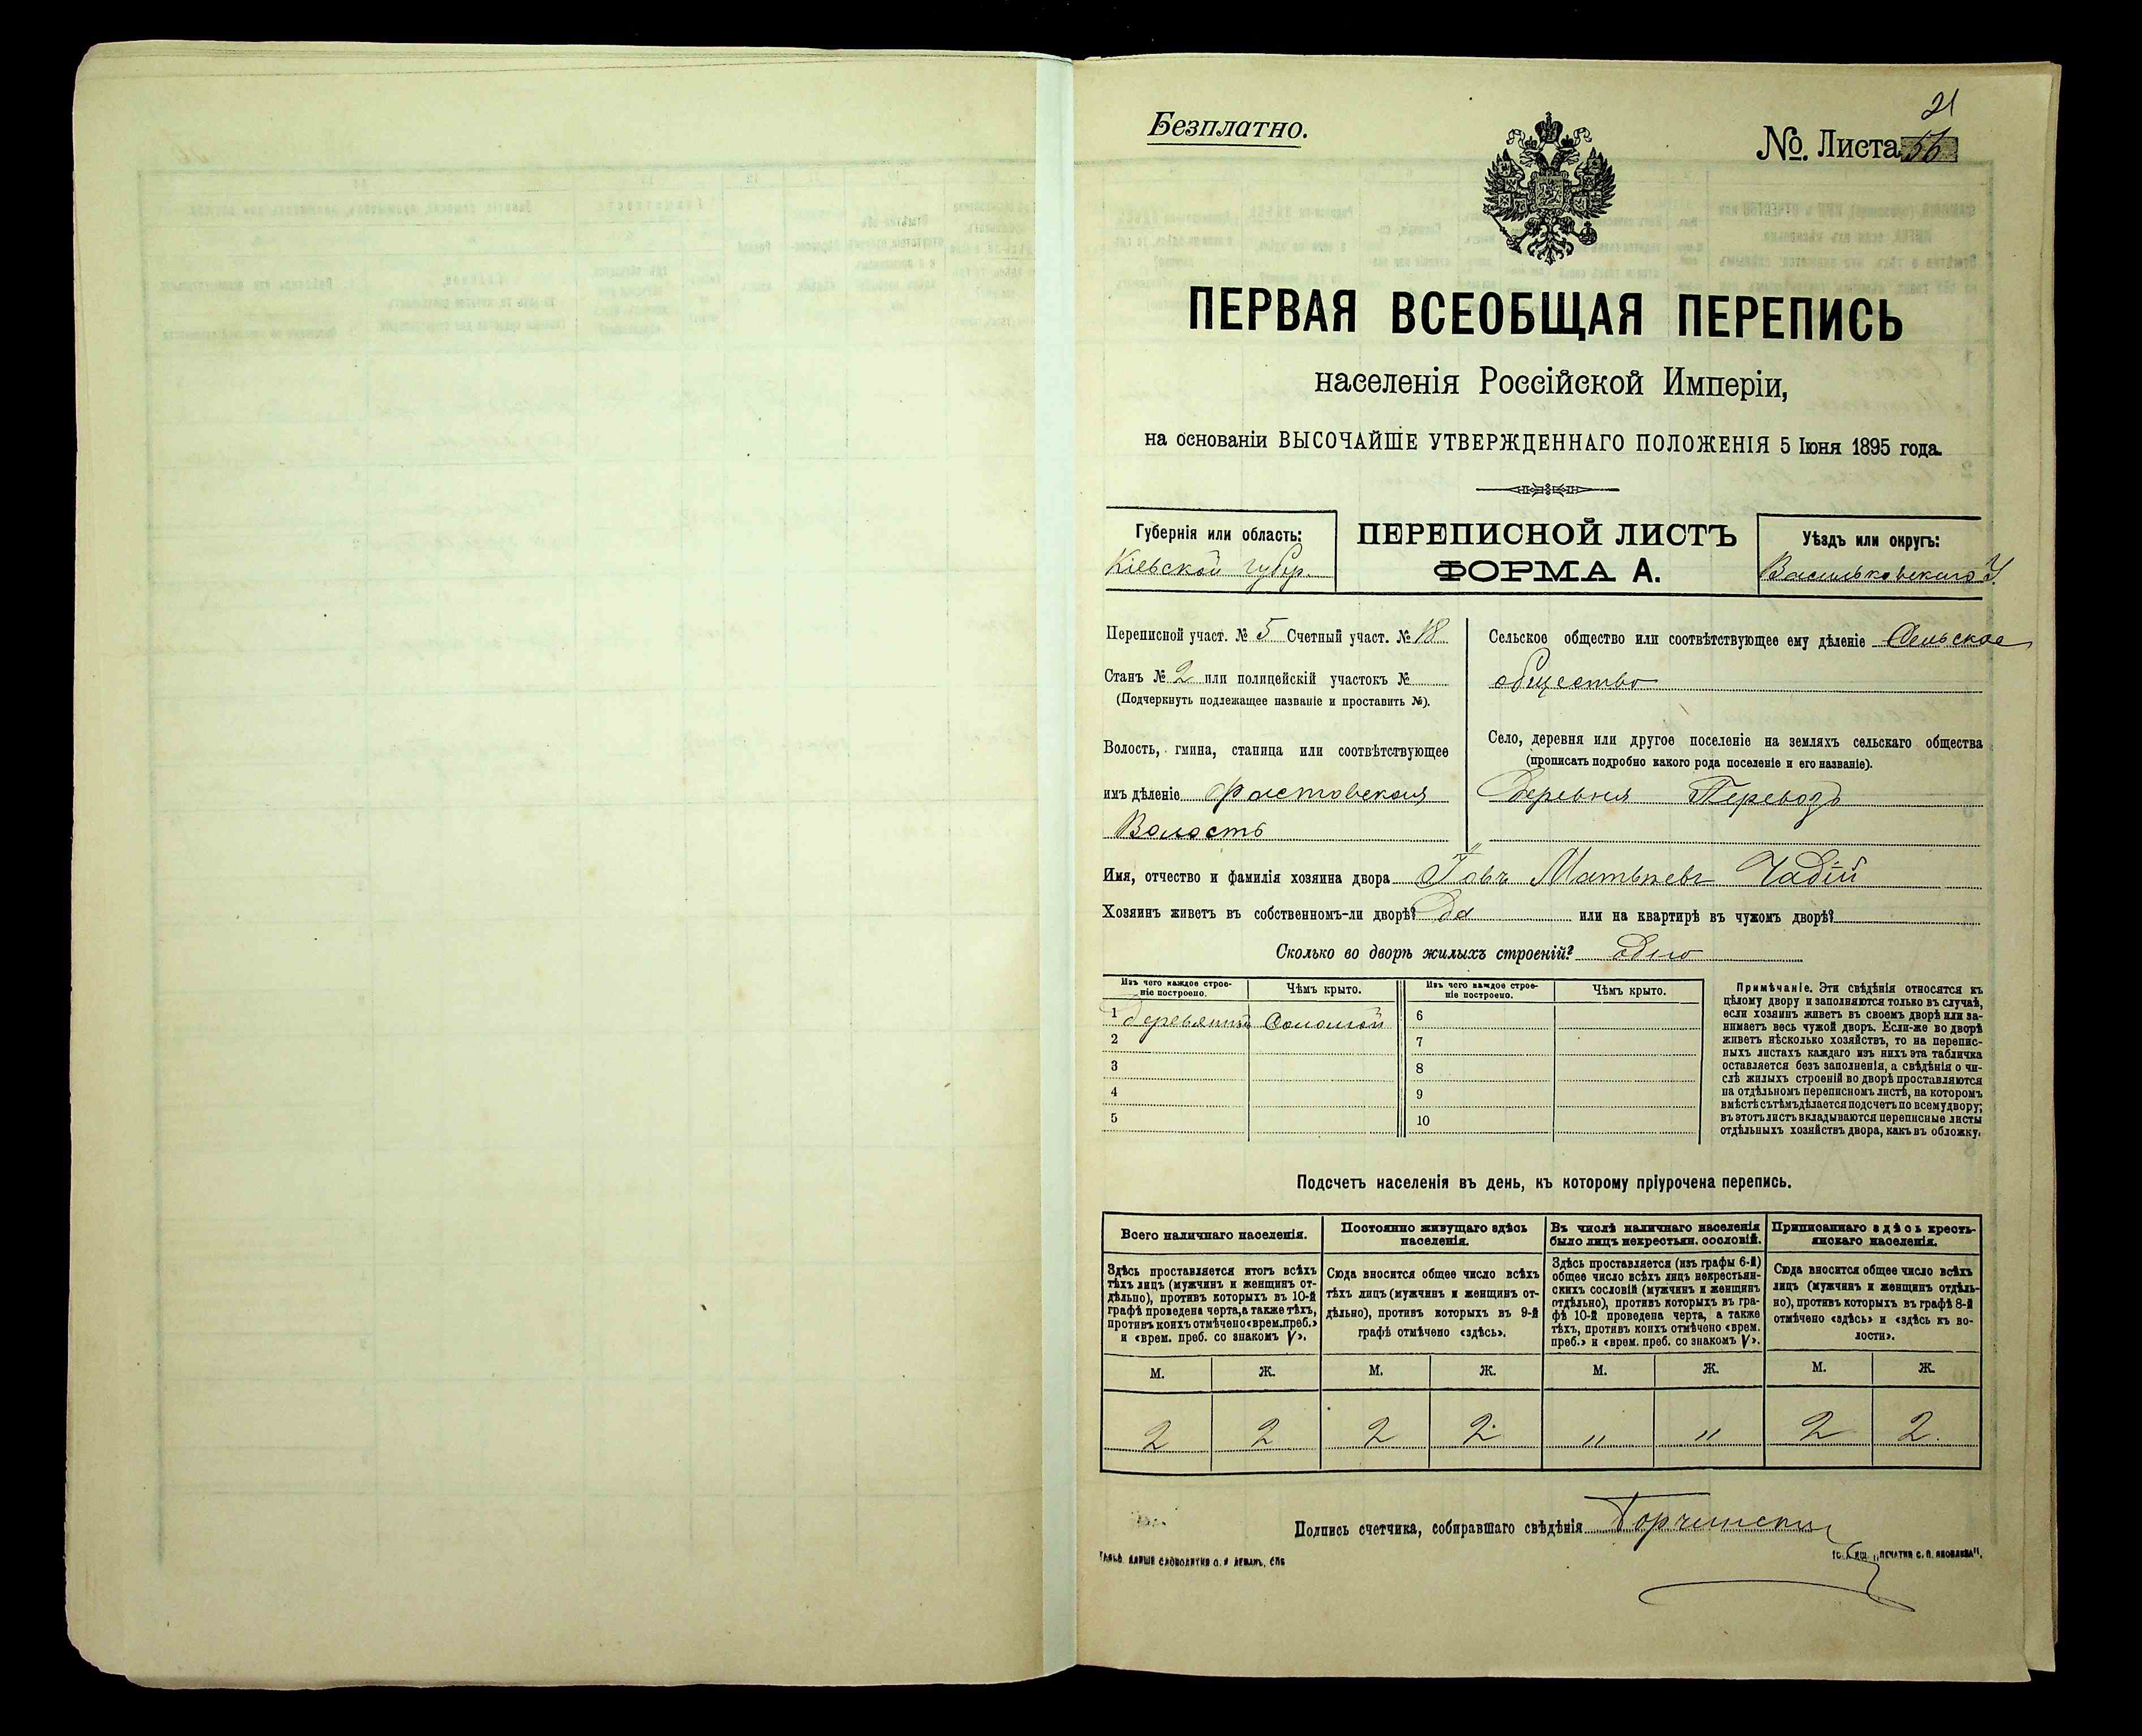 21
Безплатно.
№. Листа 56
ПЕРВАЯ ВСЕОБЩАЯ ПЕРЕПИСЬ
населенія Россійской Имперіи,
на основаніи ВЫСОЧАЙШЕ УТВЕРЖДЕННАГО ПОЛОЖЕНІЯ 5 Іюня 1895 года.
Губернія или область:
Кіевской губер.
ПЕРЕПИСНОЙ ЛИСТЪ
ФОРМА А.
Уѣздъ или округъ:
Васильковскаго У.
Переписной участ. № 5 Счетный участ. № 18
Станъ № 2 или полицейскій участокъ №
(Подчеркнуть подлежащее названіе и проставить №).
Волость, гмина, станица или соотвѣтствующее
имъ дѣленіе Фастовская
Волость
Сельское общество или соотвѣтствующее ему дѣленіе Сельское
общество
Село, деревня или другое поселеніе на земляхъ сельскаго общества
(прописать подробно какого рода поселеніе и его названіе).
Деревня Перевозъ
Имя, отчество и фамилія хозяина двора Іовъ Матвѣевъ Чабій
Хозяинъ живетъ въ собственномъ-ли дворѣ? Да или на квартирѣ въ чужомъ дворѣ?
Сколько во дворѣ жилыхъ строеній? одно
Изъ чего каждое строе-
ніе построено.
Чѣмъ крыто.
Изъ чего каждое строе-
ніе построено.
Чѣмъ крыто.
1 деревянный Соломой 6
2 7
3 8
4 9
5 10
Примѣчаніе. Эти свѣдѣнія относятся къ
цѣлому двору и заполняются только въ случаѣ,
если хозяинъ живетъ въ своемъ дворѣ или за-
нимаетъ весь чужой дворъ. Если-же во дворѣ
живетъ нѣсколько хозяйствъ, то на перепис-
ныхъ листахъ каждаго изъ нихъ эта табличка
оставляется безъ заполненія, а свѣдѣнія о чи-
слѣ жилыхъ строеній во дворѣ проставляются
на отдѣльномъ переписномъ листѣ, на которомъ
вмѣстѣ съ тѣмъ дѣлается подсчетъ по всему двору;
въ этотъ листъ вкладываются переписные листы
отдѣльныхъ хозяйствъ двора, какъ въ обложку.
Подсчетъ населенія въ день, къ которому пріурочена перепись.
Всего наличнаго населенія.
Здѣсь проставляется итогъ всѣхъ
тѣхъ лицъ (мужчинъ и женщинъ от-
дѣльно), противъ которыхъ въ 10-й
графѣ проведена черта, а также тѣхъ,
противъ коихъ отмѣчено «врем. преб.»
и «врем. преб. со знакомъ V».
Постоянно живущаго здѣсь
населенія.
Сюда вносится общее число всѣхъ
тѣхъ лицъ (мужчинъ и женщинъ от-
дѣльно), противъ которыхъ въ 9-й
графѣ отмѣчено «здѣсь».
Въ числѣ наличнаго населенія
было лицъ некрестьян. сословій.
Здѣсь проставляется (изъ графы 6-й)
общее число всѣхъ лицъ некрестьян-
скихъ сословій (мужчинъ и женщинъ
отдѣльно), противъ которыхъ въ гра-
фѣ 10-й проведена черта, а также
тѣхъ, противъ коихъ отмѣчено «врем.
преб.» и «врем. преб. со знакомъ V».
Приписаннаго здѣсь кресть-
янскаго населенія.
Сюда вносится общее число всѣхъ
лицъ (мужчинъ и женщинъ отдѣль-
но), противъ которыхъ въ графѣ 8-й
отмѣчено «здѣсь» и «здѣсь къ во-
лости».
М. Ж. М. Ж. М. Ж. М. Ж.
2 2 2 2 " " 2 2.
Подпись счетчика, собиравшаго свѣдѣнія